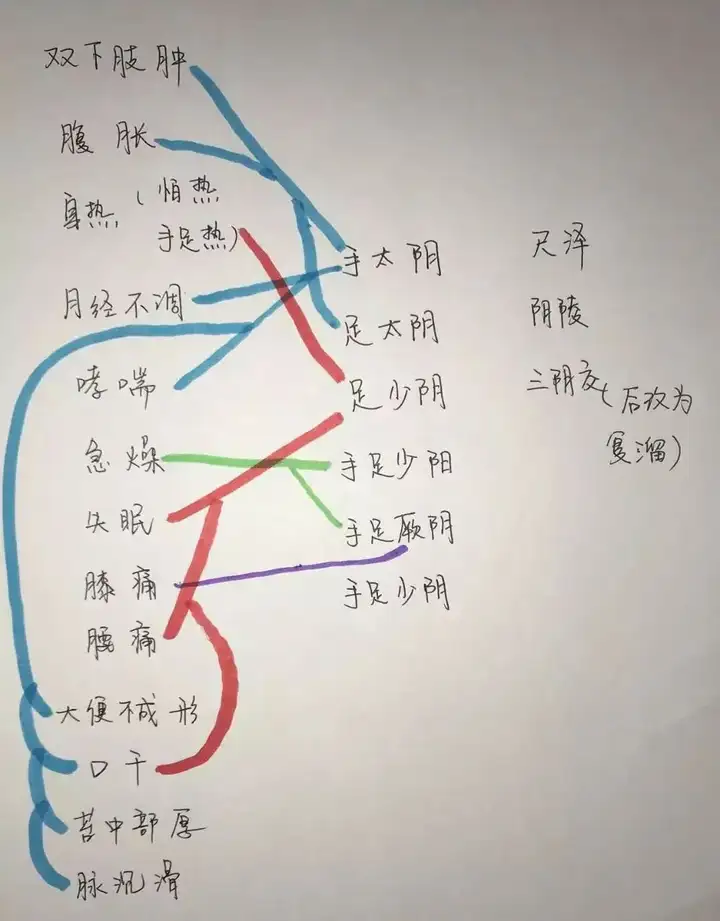 双下肢肿
腹胀
身热(怕热
手足热)
月经不调
哮喘
急燥
失眠
膝痛
腰痛
大便不成形
口干
苔中部厚
脉沉滑
手太阴
足太阴
足少阴
手足少阳
手足厥阴
手足少阴
尺泽
阴陵
三阴交(后改为
复溜)